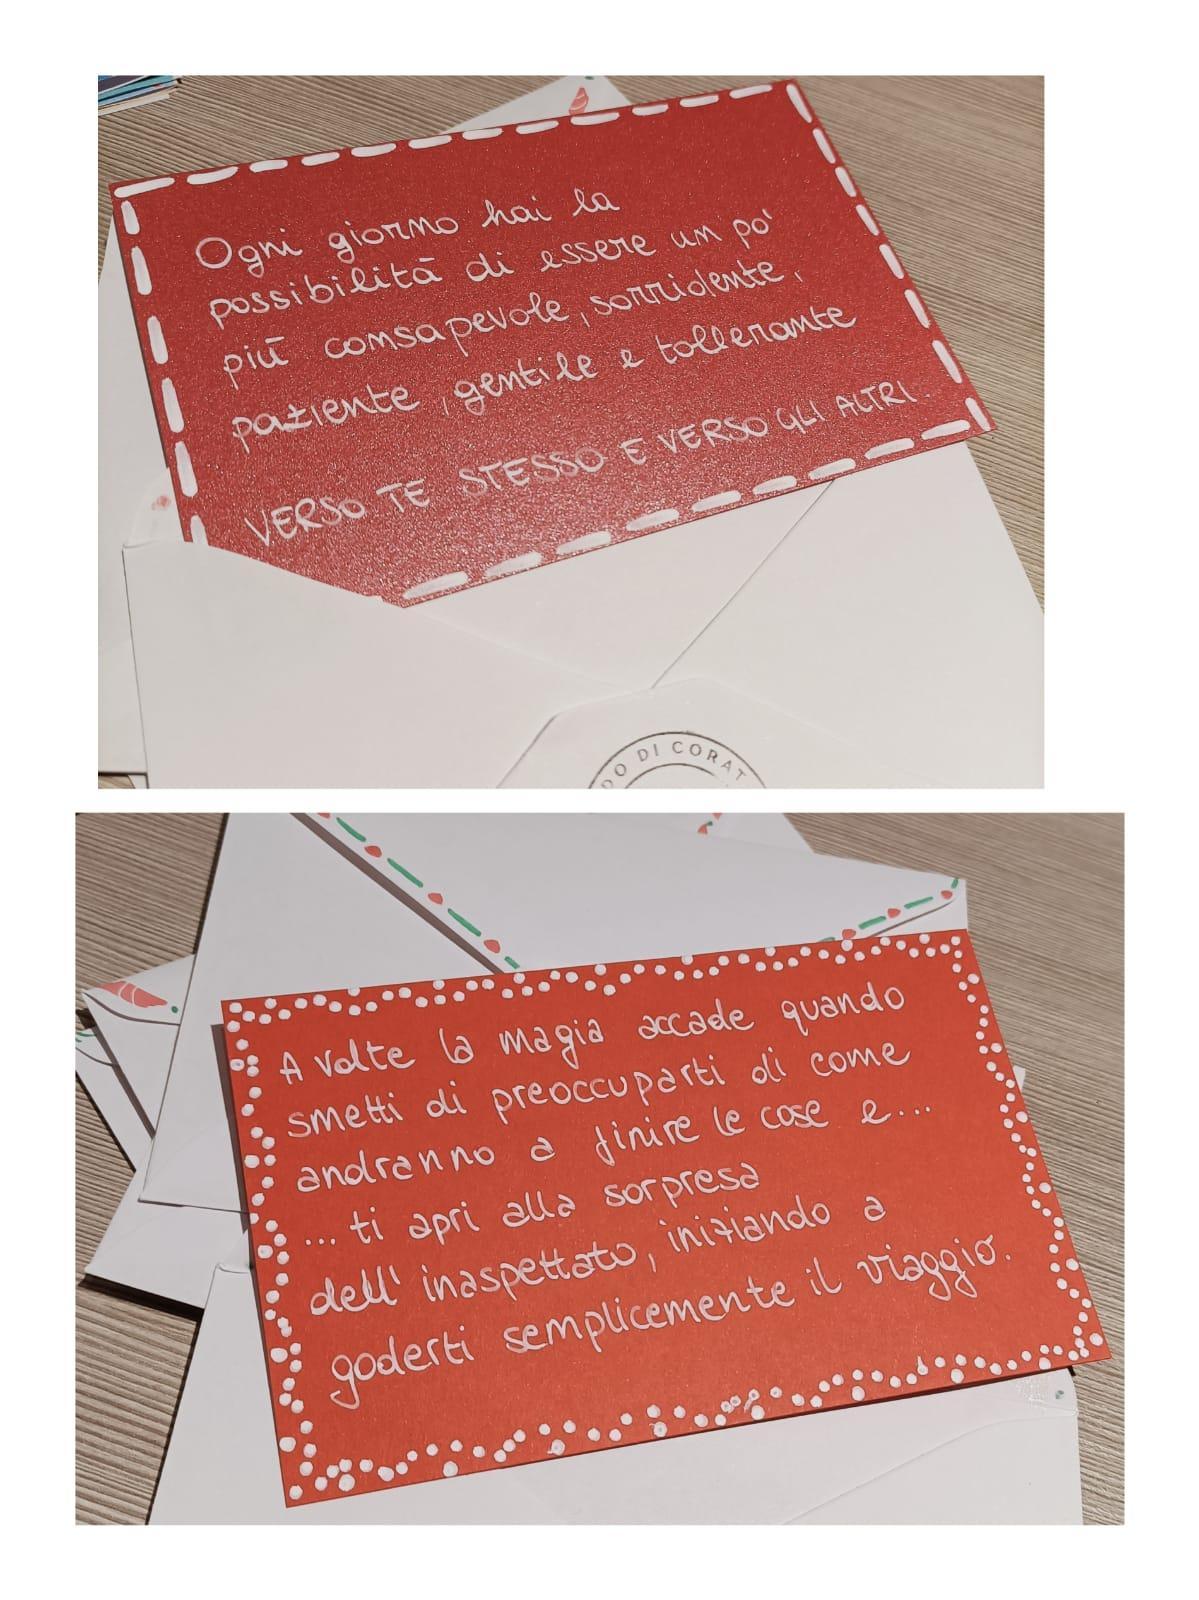 Ogni giorno hai la
possibilità di essere un po'
più consapevole, sorridente,
paziente, gentile e tollerante
VERSO TE STESSO E VERSO GLI ALTRI.
DO DI CORAT
A volte la magia accade quando
smetti di preoccuparti di come
andranno a finire le cose e...
... ti apri alla sorpresa
dell' inaspettato, iniziando a
goderti semplicemente il viaggio.